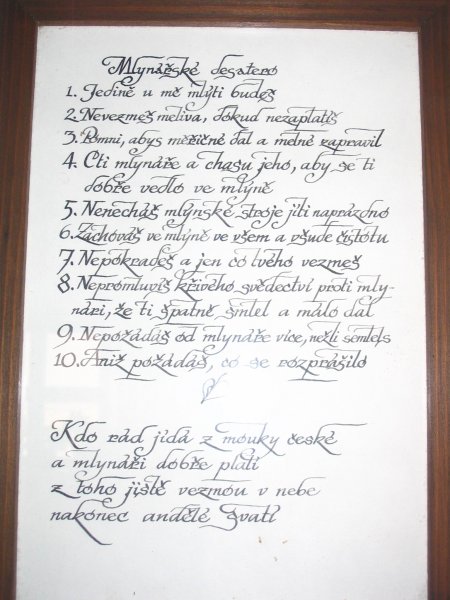 Mlynářské desatero
1. Jedině u mě mlýti budeš
2. Nevezmeš meliva, dokud nezaplatíš
3. Pomni, abys měřičné dal a melné zapravil
4. Cti mlynáře a chasu jeho, aby se ti
dobře vedlo ve mlýně
5. Nenecháš mlýnské stroje jíti naprázdno
6. Zachováš ve mlýně ve všem a všude čistotu
7. Nepokradeš a jen co tvého vezmeš
8. Nepromluvíš křivého svědectví proti mly-
náři, že ti špatně smlel a málo dal
9. Nepožádáš od mlynáře více, nežli semlels
10. Aniž požádáš, co se rozprášilo
Kdo rád jídá z mouky české
a mlynáři dobře platí
z toho jistě vezmou v nebe
nakonec andělé svatí